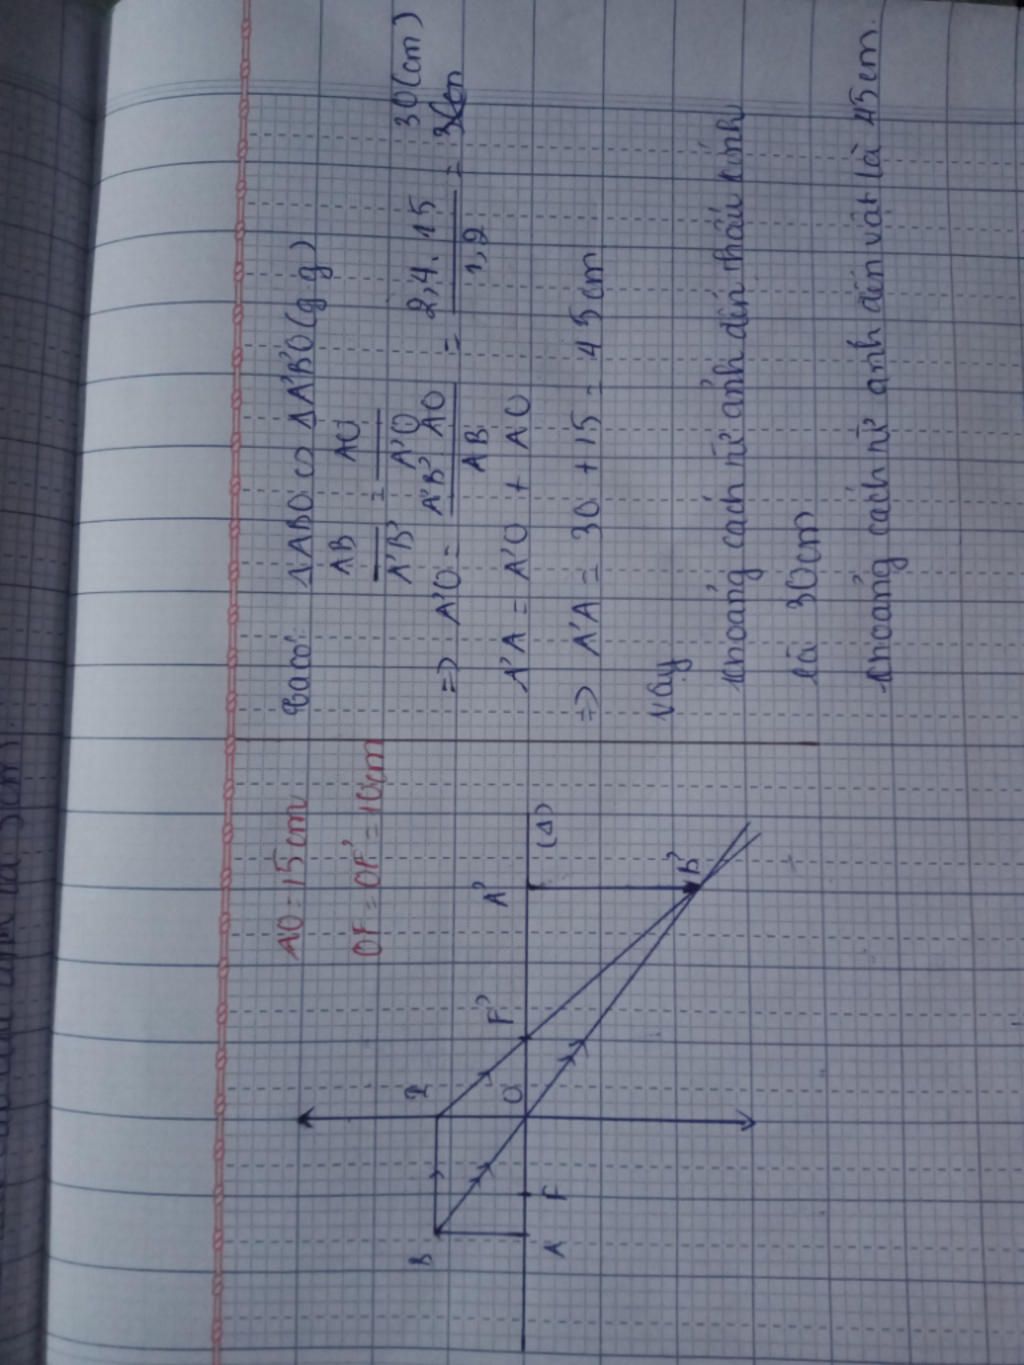 AO = 15cm
OF = OF' = 10cm
B
I
A
F
O
F'
A'
(Δ)
B'
Ta có: ΔABO ∽ ΔA'B'O (g.g)
AB / A'B' = AO / A'O
=> A'O = A'B' . AO / AB = 2,4 . 15 / 1,2 = 30 (cm)
A'A = A'O + AO
=> A'A = 30 + 15 = 45cm
Vậy
khoảng cách từ ảnh đến thấu kính
là 30cm
khoảng cách từ ảnh đến vật là 45cm.